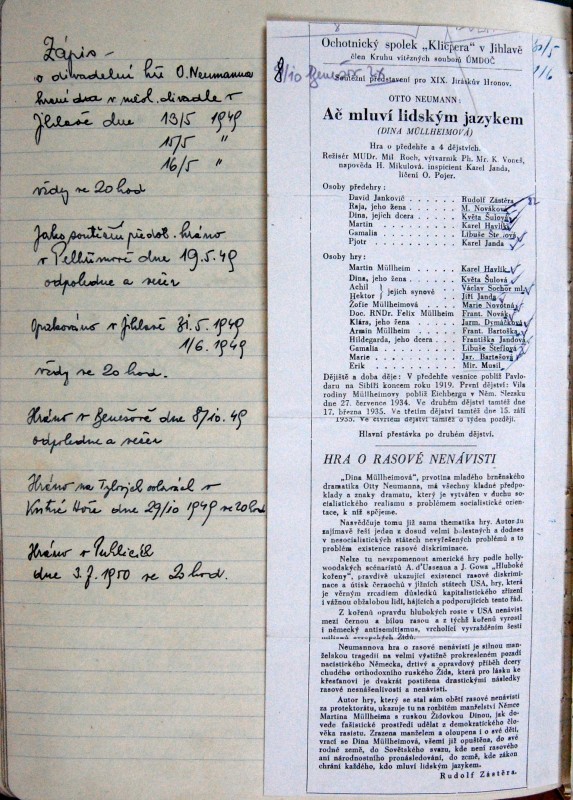 Zápis –
o divadelní hře O. Neumanna
hraní dva v měst. divadle v
Jihlavě dne 13/5 1949
15/5 "
16/5 "
vždy ve 20 hod
Jako soutěžní předst. hráno
v Pelhřimově dne 19.5.49
odpoledne a večer
Opakováno v Jihlavě 31.5.1949
1/6 1949
vždy ve 20 hod.
Hráno v Benešově dne 8/10.49
odpoledne a večer
Hráno na Tylových oslavách v
Kutné Hoře dne 29/10 1949 ve 20 hod
Hráno v
dne 3.7.1950 ve 20 hod.
8
Ochotnický spolek „Klicpera" v Jihlavě 31/5
člen Kruhu vítězných souborů ÚMDOČ 1/6
8/10 Benešov
Soutěžní představení pro XIX. Jiráskův Hronov.
OTTO NEUMANN:
Ač mluví lidským jazykem
(DINA MÜLLHEIMOVÁ)
Hra o předehře a 4 dějstvích.
Režisér MUDr. Mil Roch, výtvarník Ph. Mr. K. Voneš,
napověda H. Mikulová, inspicient Karel Janda,
líčení O. Pojer.
Osoby předehry:
David Jankovič . . . . . . Rudolf Zástěra
Raja, jeho žena . . . . . . M. Nováková
Dina, jejich dcera . . . . . Květa Šulová
Martin . . . . . . . . . Karel Havlík
Gamalia . . . . . . . . Libuše Šteflová
Pjotr . . . . . . . . . . Karel Janda
Osoby hry:
Martin Müllheim . . . . . Karel Havlík
Dina, jeho žena . . . . . . Květa Šulová
Achil } jejich synové . . . . Václav Sochor ml.
Hektor } . . . . Jiří Janda
Žofie Müllheimová . . . . Marie Novotná
Doc. RNDr. Felix Müllheim Frant. Novák
Klára, jeho žena . . . . . Jarm. Dymáčková
Armin Müllheim . . . . . Frant. Bartoška
Hildegarda, jeho dcera . . . Františka Jandová
Gamalia . . . . . . . . Libuše Šteflová
Marie . . . . . . . . . Jar. Bartešová
Erik . . . . . . . . . . Mir. Musil
Dějiště a doba děje: V předehře vesnice poblíž Pavlo-
daru na Sibíři koncem roku 1919. První dějství: Vila
rodiny Müllheimovy poblíž Eichbergu v Něm. Slezsku
dne 27. července 1934. Ve druhém dějství tamtéž dne
17. března 1935. Ve třetím dějství tamtéž dne 15. září
1935. Ve čtvrtém dějství tamtéž o týden později.
Hlavní přestávka po druhém dějství.
HRA O RASOVÉ NENÁVISTI
„Dina Müllheimová", prvotina mladého brněnského
dramatika Otty Neumanna, má všechny kladné předpo-
klady a znaky dramatu, který je vytvářen v duchu so-
cialistického realismu s problémem socialistické orien-
tace, k níž spějeme.
Nasvědčuje tomu již sama thematika hry. Autor tu
zajímavě řeší jeden z dosud velmi bolestných a dodnes
v nesocialistických státech nevyřešených problémů a to
problém existence rasové diskriminace.
Nelze tu nevzpomenout americké hry podle holly-
woodských scénáristů A. d'Usseaua a J. Gowa „Hluboké
kořeny", pravdivě ukazující existenci rasové diskrimi-
nace a útisk černochů v jižních státech USA, hry, která
je věrným zrcadlem důsledků kapitalistického zřízení
i vážnou obžalobou lidí, hájících a podporujících tento řád.
Z kořenů opravdu hlubokých roste v USA nenávist
mezi černou a bílou rasou a z týchž kořenů vyrostl
i německý antisemitismus, vrcholící vyvražděním šesti
milionů evropských Židů.
Neumannova hra o rasové nenávisti je silnou man-
želskou tragedií na velmi výstižně prokresleném pozadí
nacistického Německa, drtivý a opravdový příběh dcery
chudého orthodoxního ruského Žida, která pro lásku ke
křesťanovi je dvakrát postižena drastickými následky
rasové nesnášenlivosti a nenávisti.
Autor hry, který se stal sám obětí rasové nenávisti
za protektorátu, ukazuje tu na rozbitém manželství Němce
Martina Müllheima s ruskou Židovkou Dinou, jak do-
vede fašistické prostředí udělat z demokratického člo-
věka rasistu. Zrazena manželem a oloupena i o své děti,
vrací se Dina Müllheimová, všemi již opuštěna, do své
rodné země, do Sovětského svazu, kde není rasového
ani národnostního pronásledování, do země, kde zákon
chrání každého, kdo mluví lidským jazykem.
Rudolf Zástěra.